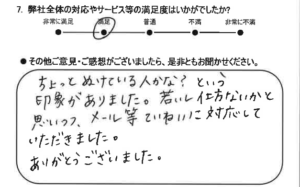 7. 弊社全体の対応やサービス等の満足度はいかがでしたか?
非常に満足 満足 普通 不満 非常に不満
●その他ご意見・ご感想がございましたら、是非ともお聞かせください。
ちょっとぬけている人かな?という
印象がありました。若いし仕方ないかと
思いつつ、メール等ていねいに対応して
いただきました。
ありがとうございました。